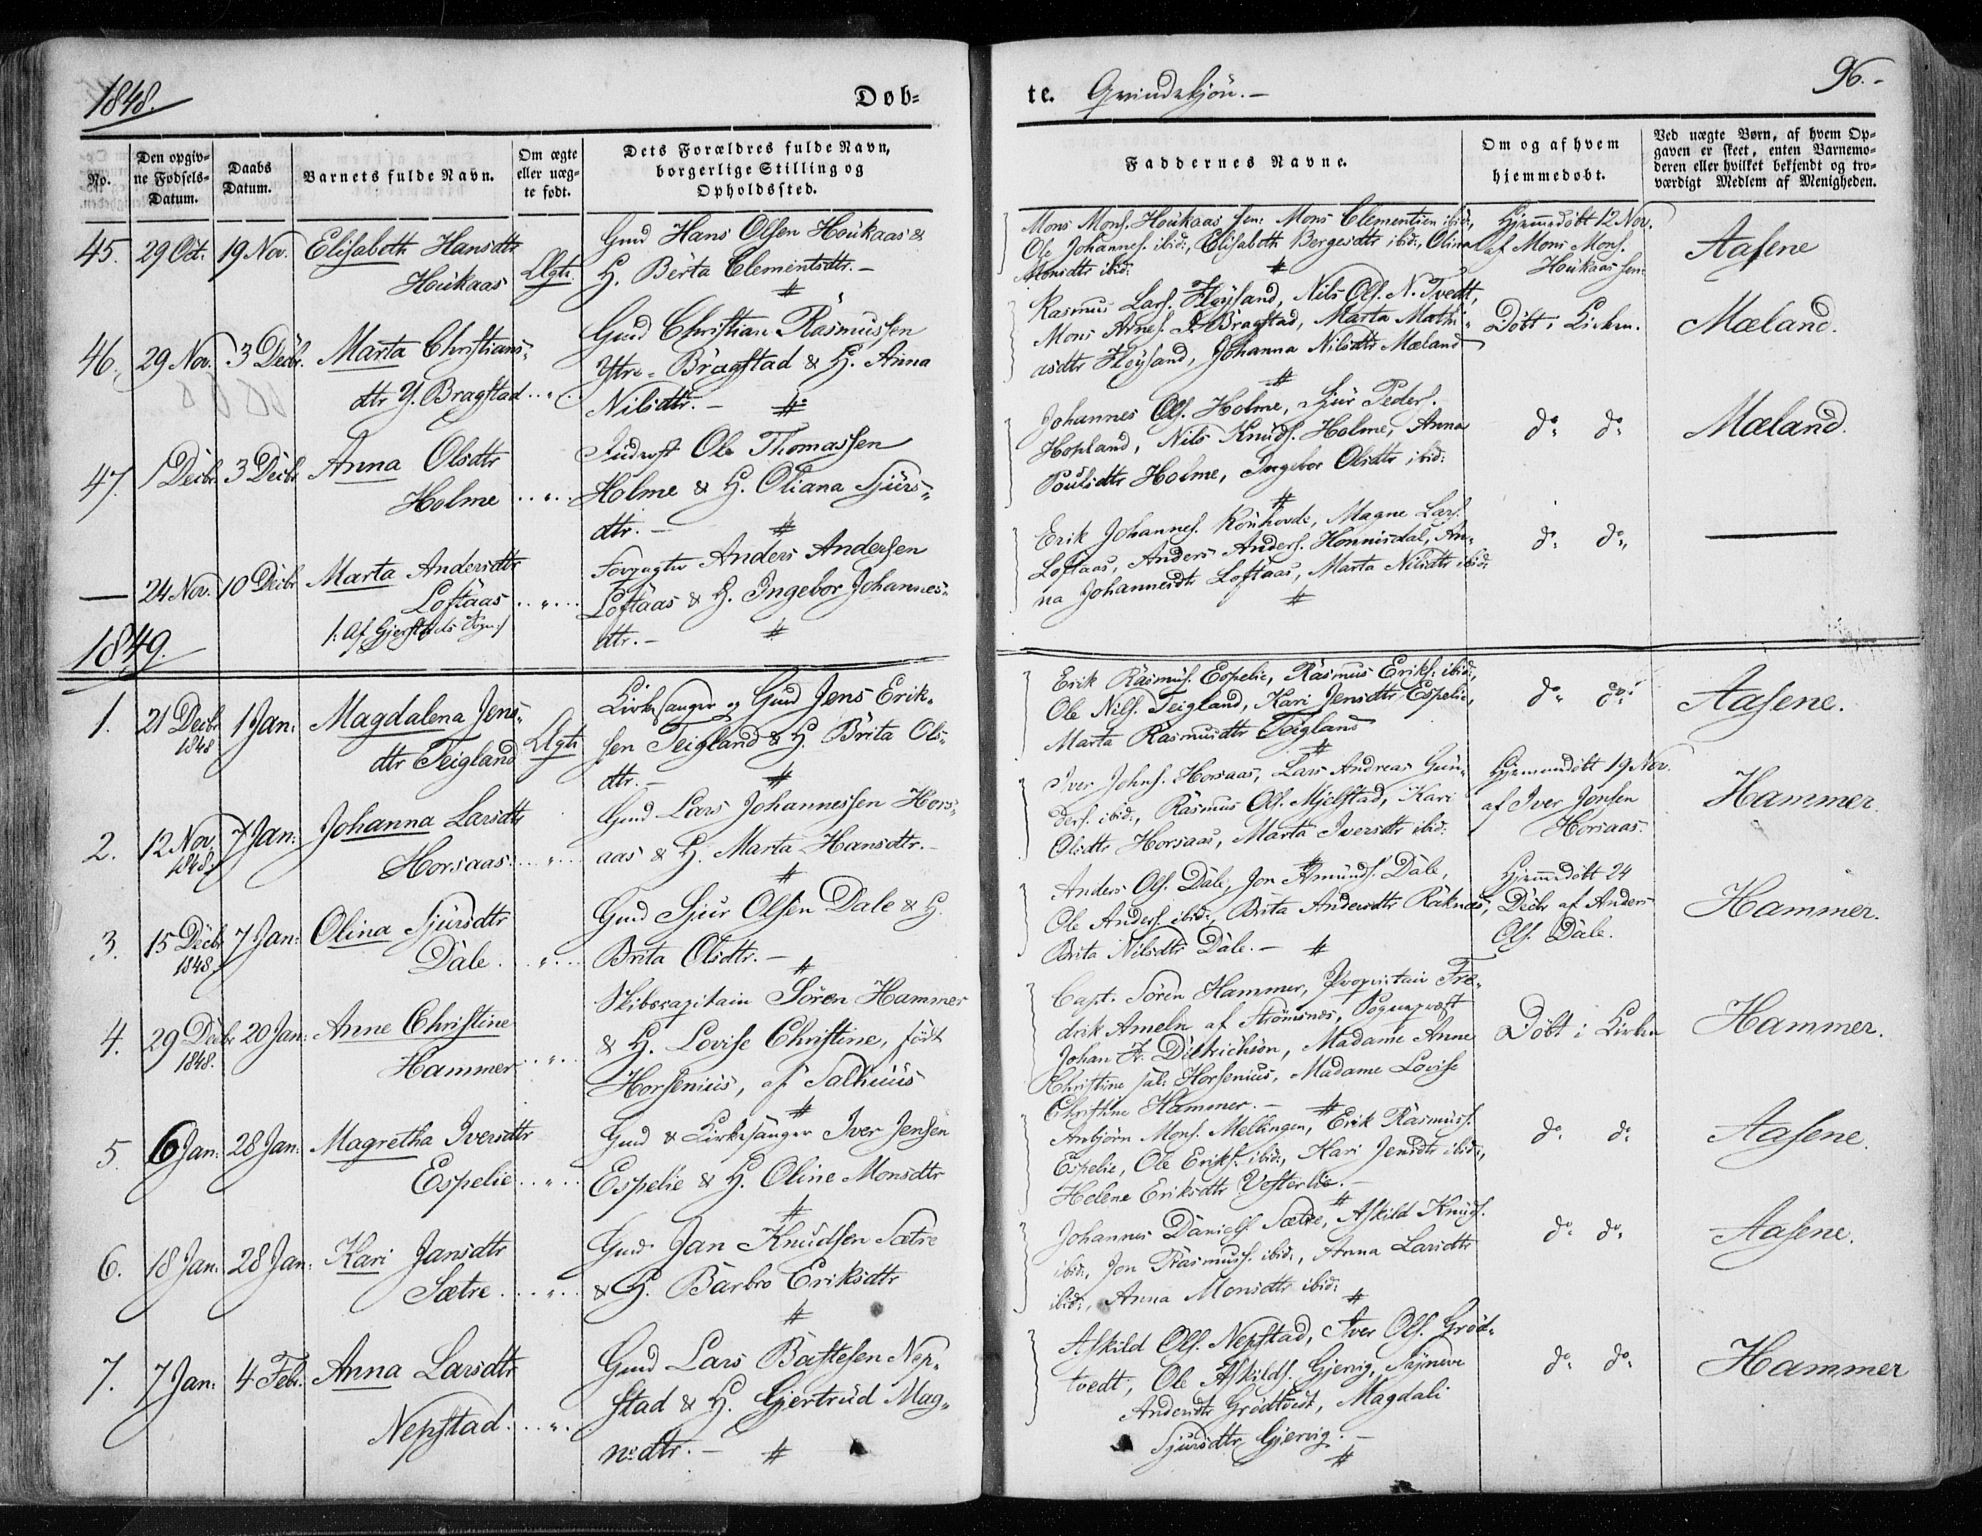 1848.
Døb=
te. Qvindekjön.-
96.-
No.
Den opgiv=
ne Fødsels=
Datum.
Daabs
Datum.
Barnets fulde Navn.
Om ægte
eller uæg=
te født.
Dets Forældres fulde Navn,
borgerlige Stilling og
Opholdssted.
Faddernes Navne.
Om og af hvem
hjemmedøbt.
Ved uægte Børn, af hvem Op=
gaven er skeet, enten Barnemo=
deren eller hvilket bekjendt og tro=
værdigt Medlem af Menigheden.
45. 29 Oct. 19 Nov. Elisabeth Hansdtr
Houkaas
Ægte
Gmd Hans Olsen Houkaas &
H. Berta Clementsdtr.-
Mons Mons. Houkaas sen: Mons Clementsen ibid:,
Ole Johannes. ibid:, Elisabeth Bergesdtr ibid:, Olina
Monsdtr ibid:
Hjemmedöbt 12 Nov.
af Mons Mons.
Houkaas sen:
Aasene
46. 29 Nov. 3 Decbr. Marta Christians-
dtr Y. Bragstad
Gmd Christian Rasmussen
Ytre-Bragstad & H. Anna
Nilsdtr.-
Rasmus Lars. Flöysand, Nils Ols. N. Tvedt,
Mons Arnes. Bragstad, Marta Mathi-
asdtr Flöysand, Johanna Nilsdtr Mæland
Döbt i Kirken.
Mæland.
47. 1 Decbr. 3 Decbr Anna Olsdtr
Holme
Inderst Ole Thomassen
Holme & H. Oliana Sjurs-
dtr.-
Johannes Ols. Holme, Sjur Peders.
Hopland, Nils Knuds. Holme, Anna
Poulsdtr Holme, Ingebor Olsdtr ibid:
do: do:
Mæland.
— 24 Nov. 10 Decbr Marta Andersdtr
Loftaas
/: Af Gjerstads Sogn:/
Forpagter Anders Andersen
Loftaas & H. Ingebor Johannes-
dtr.-
Erik Johannes. Rönhovde, Magne Lars.
Loftaas, Anders Anders. Hennisdal, An-
na Johannesdtr Loftaas, Marta Nilsdtr ibid:
do: do:
—
1849.
1. 21 Decbr
1848 1 Jan: Magdalena Jens-
dtr Teigland
Ægte
Kirkesanger og Gmd Jens Erik-
sen Teigland & H. Brita Ols-
dtr.-
Erik Rasmus. Espelie, Rasmus Eriks. ibid:,
Ole Nils. Teigland, Kari Jensdtr Espelie,
Marta Rasmusdtr Teigland
do: do:
Aasene.
2. 12 Nov.
1848. 7 Jan: Johanna Larsdtr
Horsaas.
Gmd Lars Johannessen Hors-
aas & H. Marta Hansdtr.-
Iver Johns. Horsaas, Lars Andreas Gun-
ders. ibid:, Rasmus Ols. Mjelstad, Kari
Olsdtr Horsaas, Marta Iversdtr ibid:
Hjemmedöbt 19 Nov.
af Iver Jonsen
Horsaas.
Hammer
3. 15 Decbr
1848. 7 Jan: Olina Sjursdtr
Dale
Gmd Sjur Olsen Dale & H.
Brita Olsdtr.-
Anders Ols. Dale, Jon Amunds. Dale,
Ole Anders. ibid:, Brita Andersdtr Raknæs,
Brita Nilsdtr Dale.-
Hjemmedöbt 24
Decbr af Anders
Ols. Dale.
Hammer.
4. 29 Decbr
1848. 20 Jan: Anne Christine
Hammer
Skibscapitain Sören Hammer
& H. Lovise Christine, födt
Horsenius, af Salhuus
Capt. Sören Hammer, Proprietair Fre-
drik Ameln af Strömsnes, Sognepræst
Johan Fr. Ditrichson, Madame Anne
Christine sal: Horsenius, Madame Lovise
Christine Hammer.-
Döbt i Kirken
Hammer.
5. 6 Jan: 28 Jan: Magretha Iversdtr
Espelie
Gmd & Kirkesanger Iver Jensen
Espelie & H. Oline Monsdtr
Anbjörn Mons. Mellingen, Erik Rasmus.
Espelie, Ole Eriks. ibid:, Kari Jensdtr ibid:,
Helene Eriksdtr Vesterlie.-
do: do:
Aasene.
6. 18 Jan: 28 Jan: Kari Jansdtr
Sætre
Gmd Jan Knudsen Sætre
& H. Barbro Eriksdtr
Johannes Daniels. Sætre, Askild Knuds.
ibid:, Jon Rasmuss. ibid:, Anna Larsdtr
ibid:, Anna Monsdtr ibid:
do: do:
Aasene.
7. 7 Jan: 4 Febr. Anna Larsdtr
Nepstad.
Gmd Lars Bastesen Nep-
stad & H. Gjertrud Mag-
nedtr.-
Askild Ols. Nepstad, Iver Ols. Gröd-
tvedt, Ole Askilds. Gjervig, Sÿneve
Andersdtr Grödtvedt, Magdali
Sjursdtr Gjervig.-
do: do:
Hammer